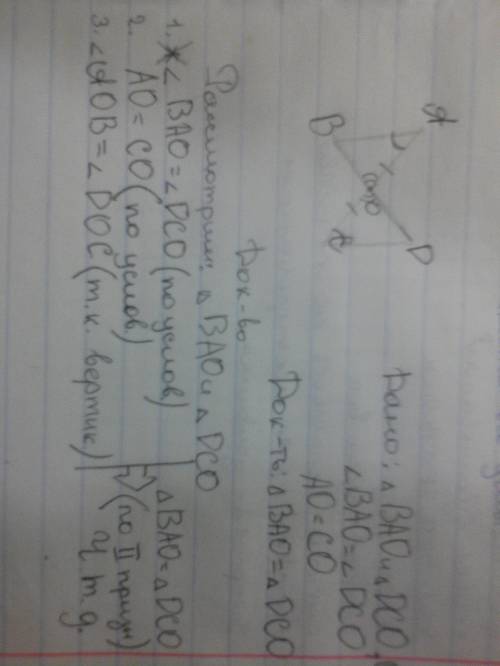 Дано: △ BAO и △ DCO,
∠BAO = ∠DCO
AO = CO
Док-ть: △ BAO = △ DCO
A
B
O
C
D
Док-во
Рассмотрим: △ BAO и △ DCO
1. ∠ BAO = ∠DCO (по услов)
2. AO = CO (по услов)
3. ∠AOB = ∠DOC (т.к. вертик)
⇒ △ BAO = △ DCO
(по II призн)
Ч.т.д.